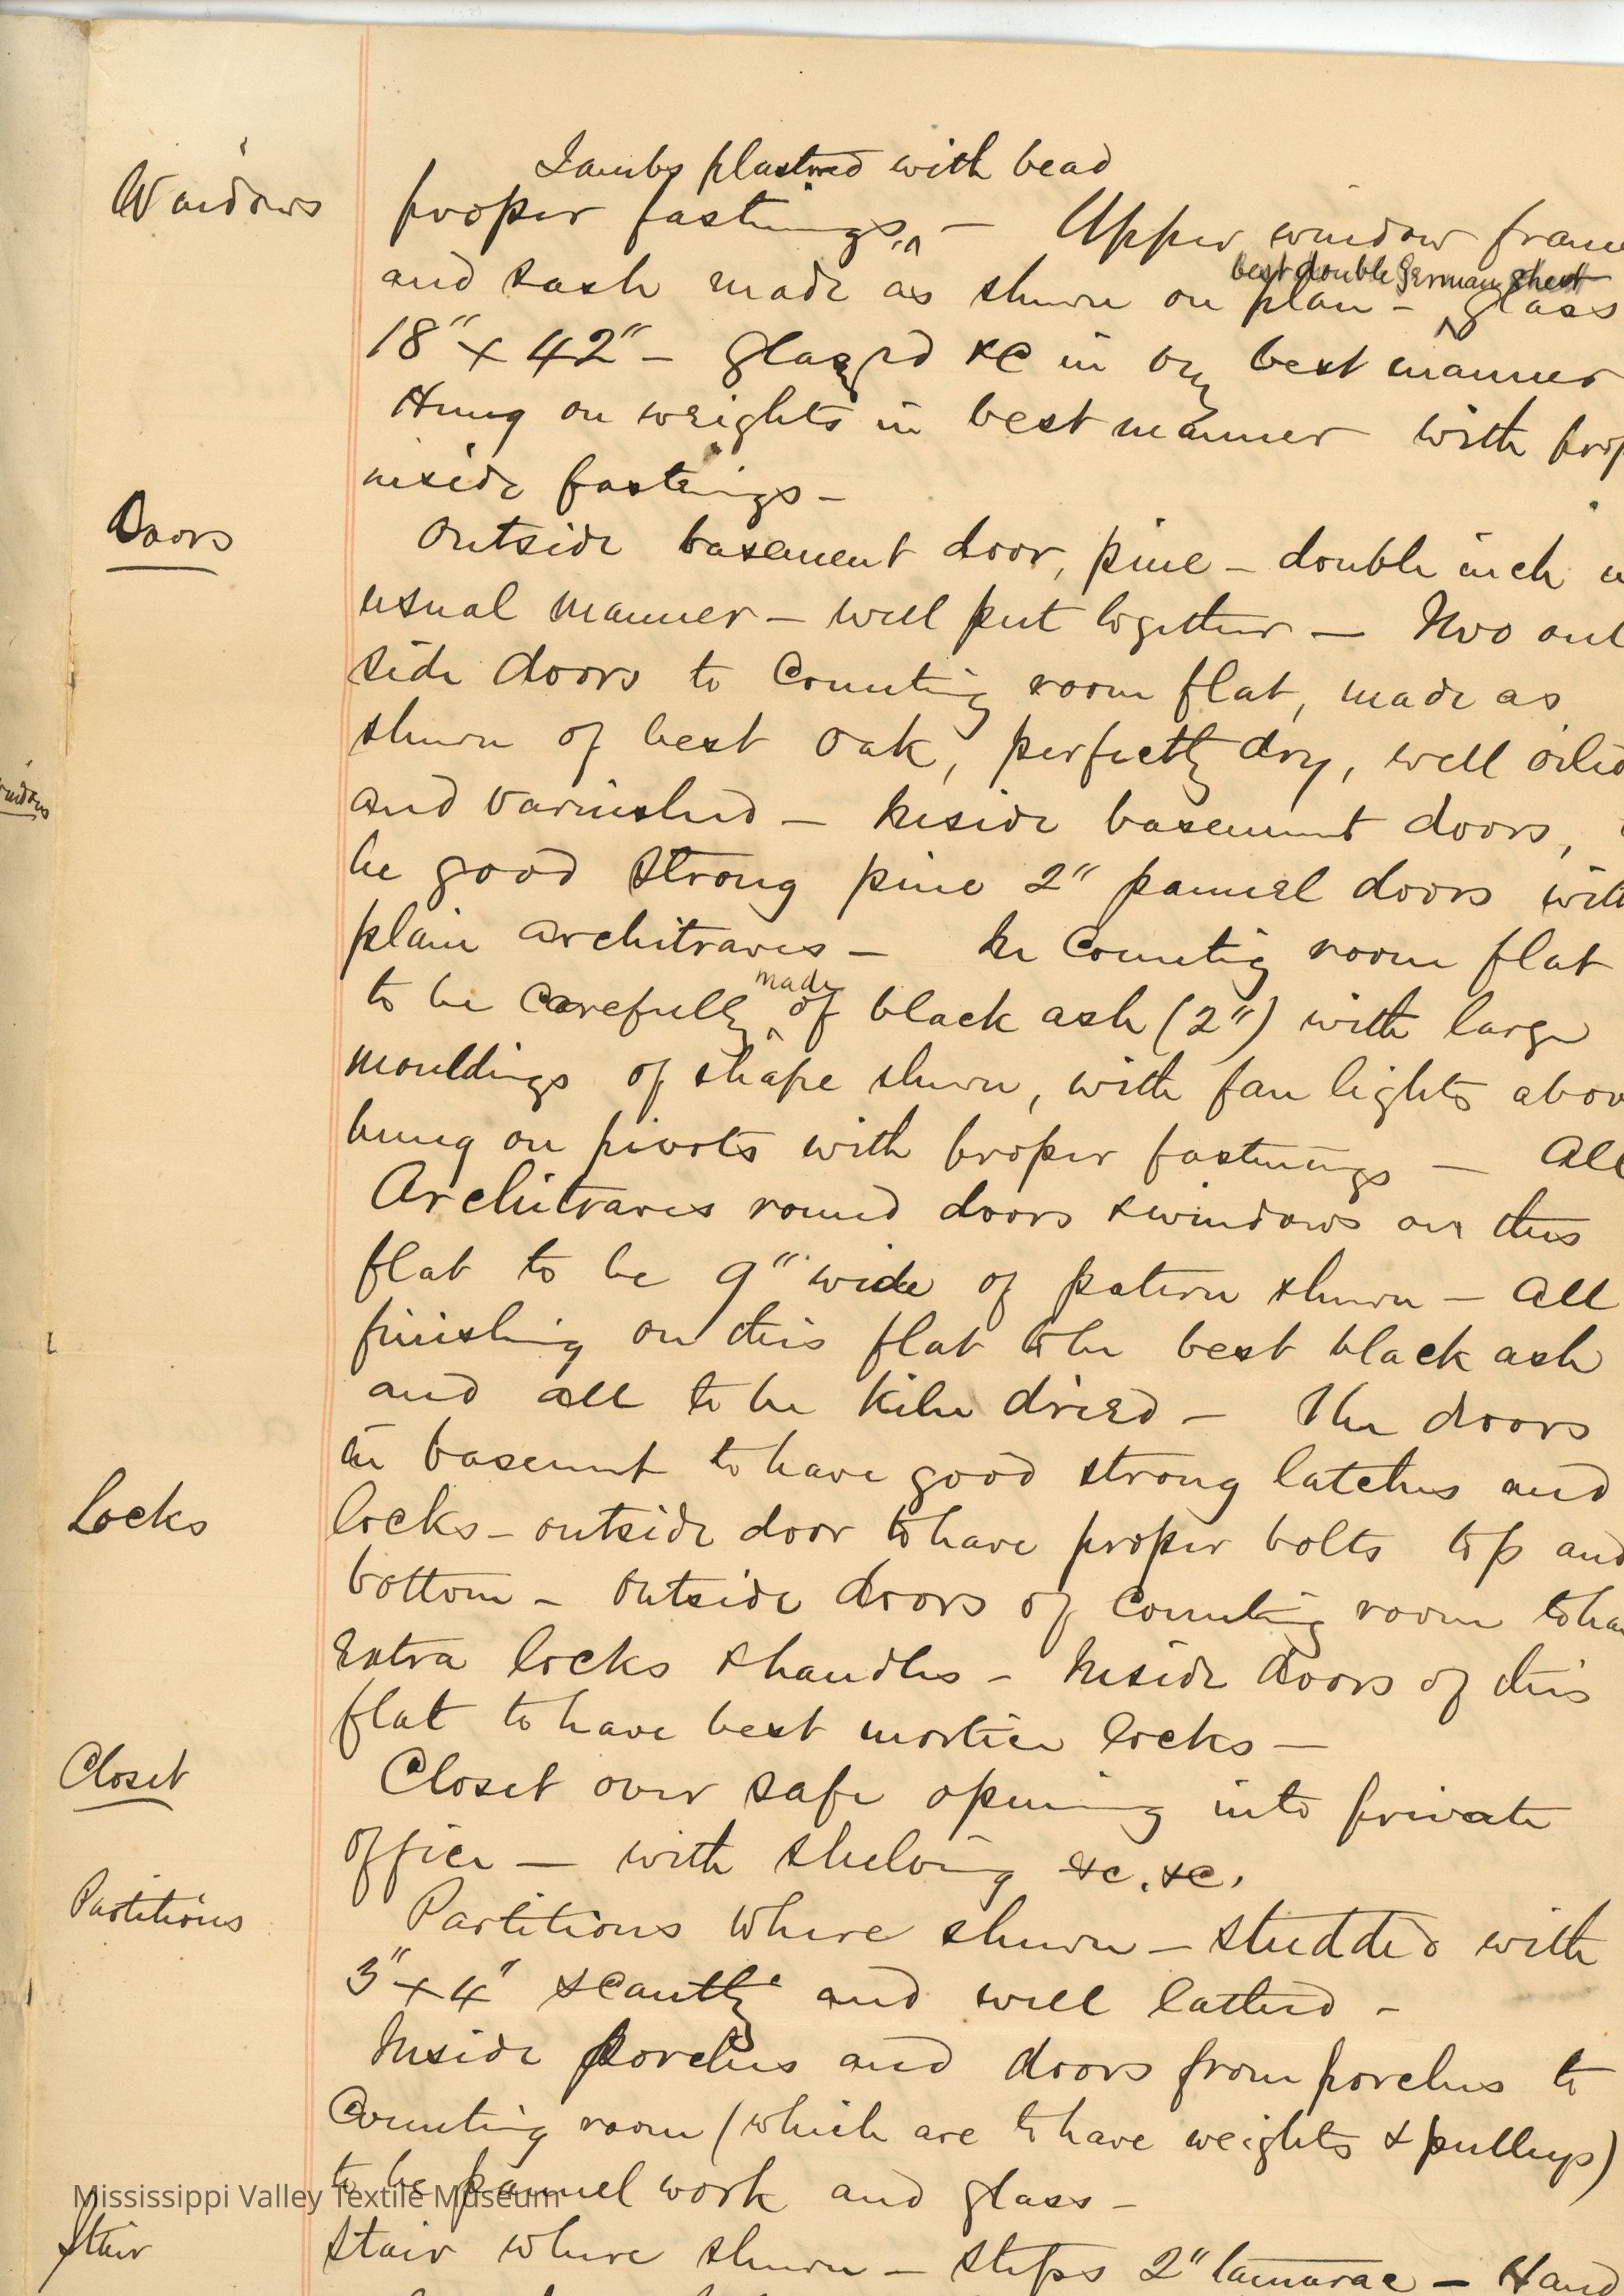 Jambs plastered with bead
Windows proper fastenings, ^ — Upper window frame
best double German sheet
and sash made as shewn on plan - ^ glass
18" x 42" — glazed &c in very best manner
Hung on weights in best manner with prop
inside fastenings —
Doors
Outside basement door, pine — double inch
usual manner — well put together — Two out
side doors to Counting room flat, made as
shewn of best oak, perfectly dry, well oiled
windows
and varnished — Inside basement doors,
be good strong pine 2" pannel doors with
plain architraves — In Counting room flat
made
to be carefully ^ of black ash (2") with large
mouldings of shape shewn, with fan lights abov
hung on pivots with proper fastenings — All
Architraves round doors & windows on this
flat to be 9" wide of patern shewn — All
finishing on this flat to be best black ash
and all to be kiln dried — The doors
in basemnt to have good strong latches and
Locks locks — outside door to have proper bolts top and
bottom — Outside doors of Counting room to ha
extra locks & handles — Inside doors of this
flat to have best mortice locks —
Closet Closet over safe opening into private
office — with shelving &c. &c.
Partitions Partitions where shewn — studded with
3" x 4" scantlg and well lathed —
Inside porches and doors from porches to
Counting room (which are to have weights & pulleys)
to be pannel work and glass —
Mississippi Valley Textile Museum
Stair Stair where shewn — steps 2" tamarac — Hand